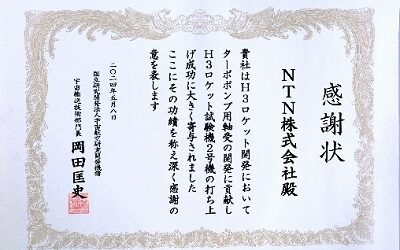 感謝状
NTN株式会社殿
貴社はH3ロケット開発において
ターボポンプ用軸受の開発に貢献し
H3ロケット試験機2号機の打ち上
げ成功に大きく寄与されました
ここにその功績を称え深く感謝の
意を表します
二〇二四年五月八日
国立研究開発法人宇宙航空研究開発機構
宇宙輸送技術部門長 岡田匡史